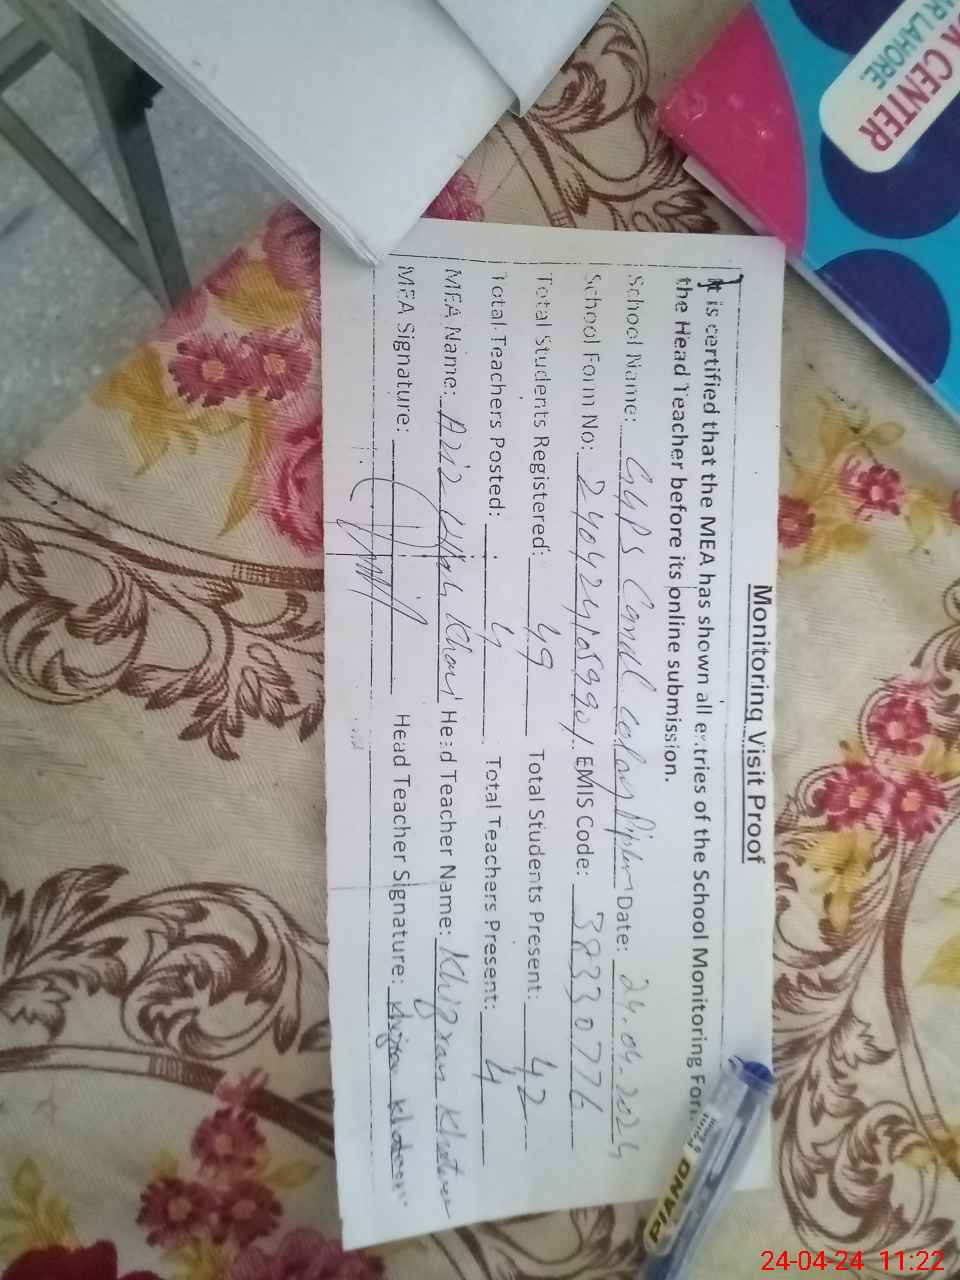 Monitoring Visit Proof
It is certified that the MEA has shown all entries of the School Monitoring Form
the Head Teacher before its online submission.
School Name: GGPS Canal Colony Date: 24.04.2024
School Form No: EMIS Code: 38330776
Total Students Registered: 49 Total Students Present: 42
Total Teachers Posted: 4 Total Teachers Present: 4
MEA Name: Aziz Ullah Khan Head Teacher Name: Khizran Khatoon
MEA Signature: Head Teacher Signature: Khizran Khatoon
CENTER
R LAHORE.
PIANO
24-04-24 11:22